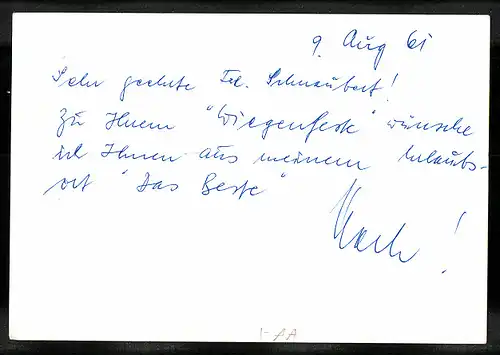 9. Aug 61
Sehr geehrte Frl. Schnaubert!
Zu Ihrem "Wiegenfeste" wünsche
ich Ihnen aus meinem Urlaubs-
ort "Das Beste"
!
1-AA